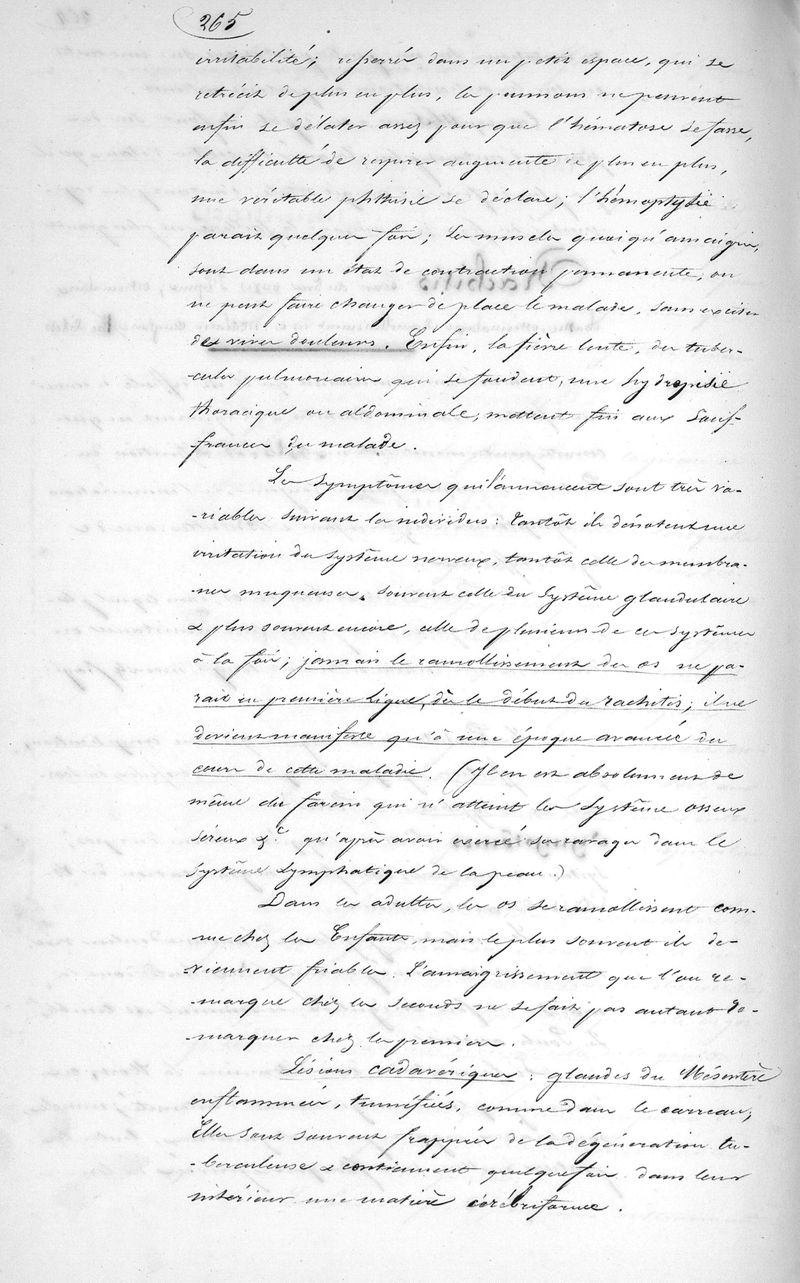 265
irritabilité; resserrés dans un petit espace, qui se
retrécit de plus en plus, les poumons ne peuvent
enfin se délater assez pour que l'hématose se fasse,
la difficulté de respirer augmente de plus en plus,
une véritable phthisie se déclare; l'hémoptysie
parait quelques fois; Les muscles quoiqu'amaigris,
sont dans un état de contraction permanente, on
ne peut faire changer de place le malade, sans exciter
de vives douleurs. Enfin, la fièvre lente, des tuber-
cules pulmonaires qui se fondent, une hydropisie
thoracique ou abdominale, mettent fin aux Souf-
frances du malade.
Les Symptômes qui l'annoncent sont très va-
-riables suivant les individus: Tantôt ils dénotent une
irritation du Système nerveux, tantôt celle des membra-
-nes muqueuses, souvent celle du Système glandulaire
& plus souvent encore, celle de plusieurs de ces Systèmes
à la fois; jamais le ramollissement des os ne pa-
rait en première ligne, dès le début du rachitis; il ne
devient manifeste qu'à une époque avancée du
cours de cette maladie. (Il en est absolument de
même du farcin qui n'atteint les Système osseux
séreux &c qu'après avoir exercé ses ravages dans le
Système Lymphatique de la peau.)
Dans les adultes, les os se ramollissent com-
-me chez les Enfants, mais le plus souvent ils de-
viennent friables. L'amaigrissement que l'on re-
-marque chez les seconds ne se fait pas autant
marquer chez les premiers.
Lésions cadavériques: glandes du Mésentère
enflammées, tuméfiées, comme dans le carreau,
Elles sont souvent frappées de la dégénération tu-
-berculeuse & contiennent quelquefois dans leur
intérieur une matière cérébriforme.